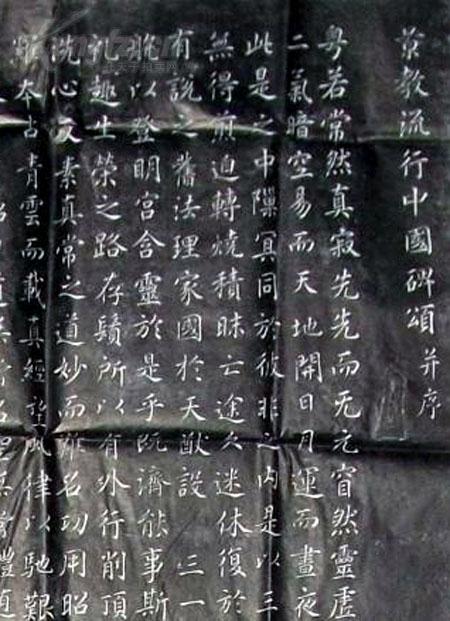 景教流行中國碑頌 并序
粵若常然真寂先先而无元窅然靈虛
二氣暗空易而天地開日月運而晝夜
此是之中隟冥同於彼非之內是以三
無得煎迫轉燒積昧亡途久迷休復於
有說之舊法理家國於天猷設 三一
航以登明宮含靈於是乎既濟能事斯
礼趣生榮之路存鬚所以有外行削頂
洗心反素真常之道妙而難名功用昭
本占青雲而載真經望風律以馳艱
道無常名聖無常體隨